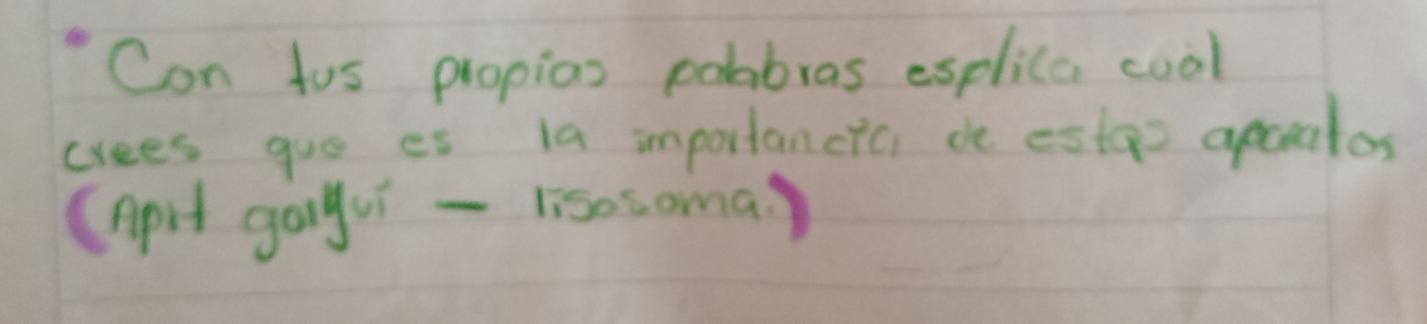 Con tus propias palabras esplica cual
crees que es la importancia de estas aparatos
(Aprt golgui - lisosoma.)